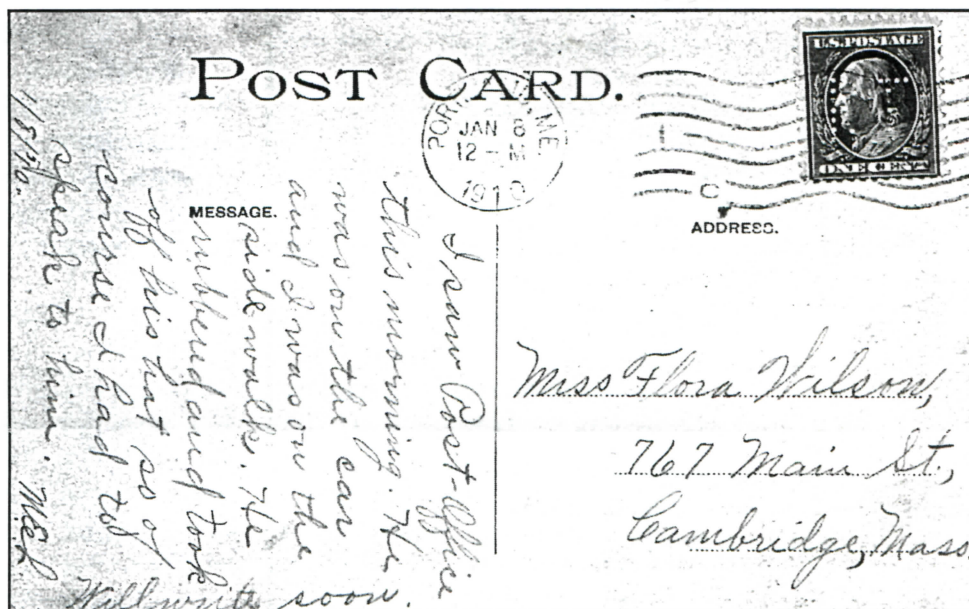 POST CARD.
U.S. POSTAGE
ONE CENT
JAN 8
12 - M
1910
C
MESSAGE.
ADDRESS.
1/8/10.
I saw Post-Office
this morning. He
was on the car
and I was on the
side walk. He
rubbered and took
off his hat so of
course I had to
speak to him.
Will write soon.
Miss Flora Wilson,
767 Main St.,
Cambridge, Mass